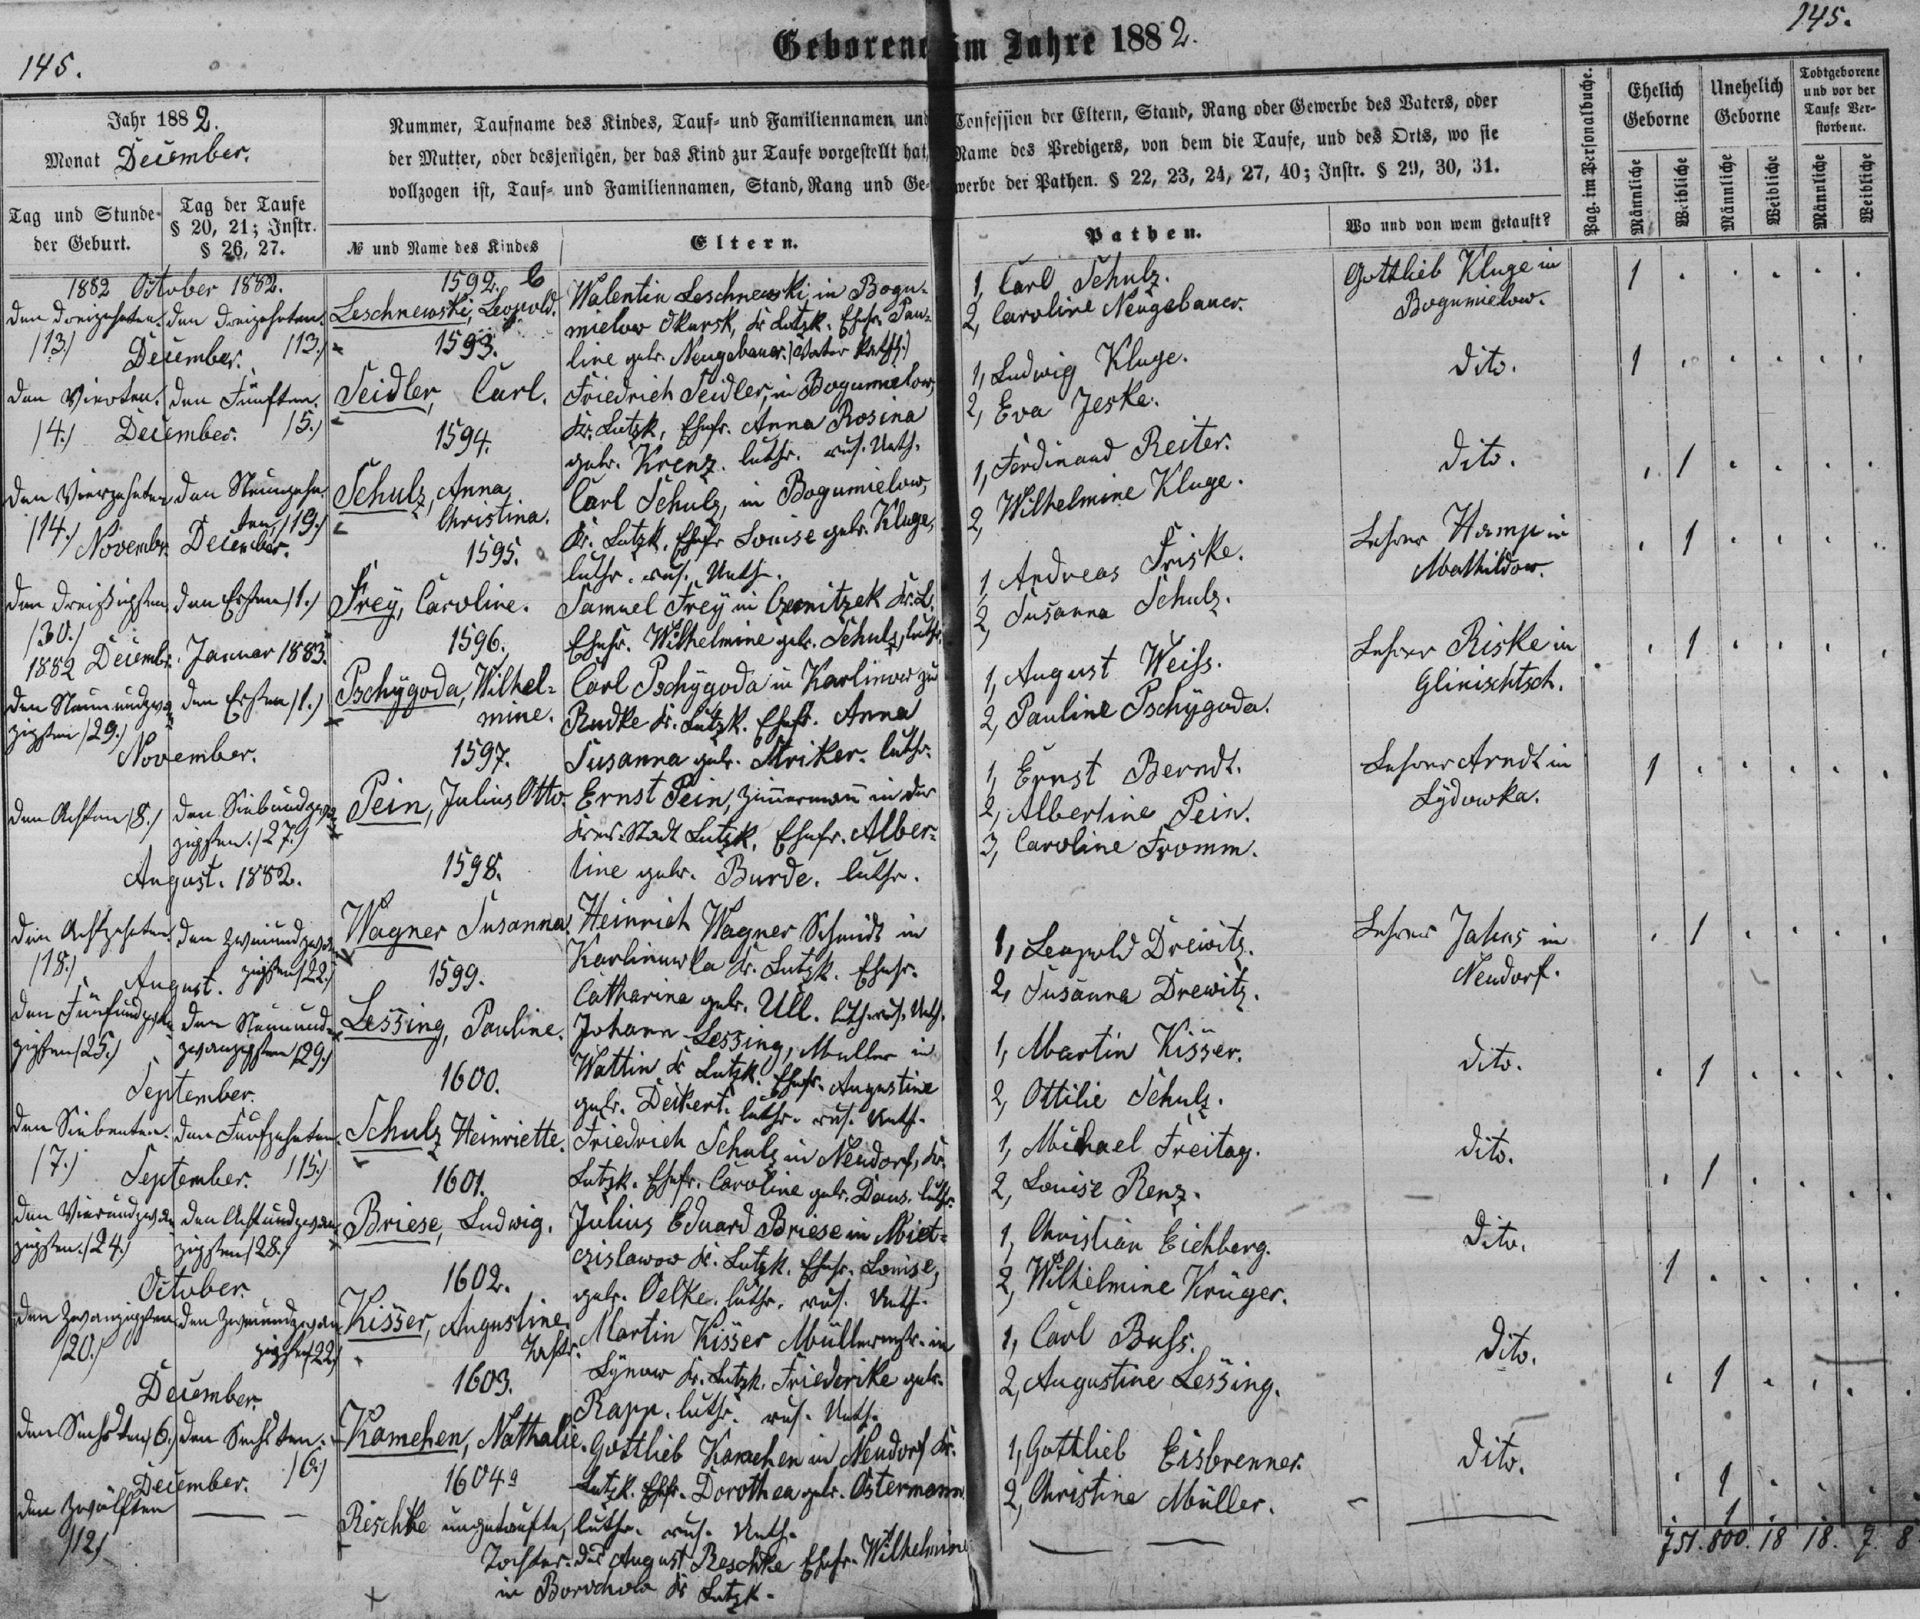 145.
Geborene im Jahre 1882.
145.
Jahr 1882.
Monat December.
Tag und Stunde der Geburt.
Tag der Taufe § 20, 21; Instr. § 26, 27.
Nummer, Taufname des Kindes, Tauf- und Familiennamen und Confession der Eltern, Stand, Rang oder Gewerbe des Vaters, oder
der Mutter, oder desjenigen, der das Kind zur Taufe vorgestellt hat, Name des Predigers, von dem die Taufe, und des Orts, wo sie
vollzogen ist, Tauf- und Familiennamen, Stand, Rang und Gewerbe der Pathen. § 22, 23, 24, 27, 40; Instr. § 29, 30, 31.
№ und Name des Kindes
Eltern.
Pathen.
Wo und von wem getauft?
Pag. im Personalbuche.
Ehelich Geborne
Unehelich Geborne
Todtgeborene und vor der Taufe Verstorbene.
Männliche
Weibliche
Männliche
Weibliche
Männliche
Weibliche
1882 October 1882.
den dreizehnten. den dreizehnten.
/13./ /13./
1592.
Leschnewski, Leopold.
Walentin Leschnewski, in Bogu-
mielow Okursk, Kr. Lutzk. Ehefr. Pau-
line geb. Neugebauer. /Vater kath./
1, Carl Schulz.
2, Caroline Neugebauer.
Gottlieb Kluge in
Bogumielow.
1
December.
den Vierten. den Fünften.
/4./ /5./
1593.
Seidler, Carl.
Friedrich Seidler, in Bogumielow,
Kr. Lutzk, Ehefr. Anna Rosina
geb. Krenz. luthr. rus. Unth.
1, Ludwig Kluge.
2, Eva Jeske.
dito.
1
December.
den Vierzehnten den Neunzehn-
/14./ ten /19./
1594.
Schulz, Anna
Christina.
Carl Schulz, in Bogumielow,
Kr. Lutzk. Ehefr Louise geb. Kluge,
luthr. rus. Unth.
1, Ferdinand Reiter.
2, Wilhelmine Kluge.
dito.
1
Novembr. December.
den dreissigsten den Ersten /1./
/30./
1595.
Frey, Caroline.
Samuel Frey in Czernitzek Kr. L.
Ehefr. Wilhelmine geb. Schulz, luthr.
1, Andreas Friske.
2, Susanna Schulz.
Lehrer Hamp in
Mathildow.
1
1882 Decembr. Januar 1883.
den Neunundzwan- den Ersten /1./
zigsten /29./
1596.
Pschygoda, Wilhel-
mine.
Carl Pschygoda in Karlinow zu
Rudke Kr. Lutzk. Ehefr. Anna
Susanna geb. Striker. luthr.
1, August Weiss.
2, Pauline Pschygoda.
Lehrer Riske in
Glinischtsch.
1
November.
den Achten /8./ den Siebundzwan-
zigsten. /27./
1597.
Pein, Julius Otto.
Ernst Pein, Zimmermann in der
Kreis-Stadt Lutzk, Ehefr. Alber-
tine geb. Burde. luthr.
1, Ernst Berndt.
2, Albertine Pein.
3, Caroline Fromm.
Lehrer Arndt in
Lydowka.
1
August. 1882.
den Achtzehnten den Zweiundzwan-
/18./ zigsten /22./
1598.
Wagner Susanna.
Heinrich Wagner Schmidt in
Karlinuwka Kr. Lutzk. Ehefr.
Catharina geb. Ull. luth. rus. Unth.
1, Leopold Drewitz.
2, Susanna Drewitz.
Lehrer Jahns in
Neudorf.
1
August.
den Fünfundzwan- den Neunund-
zigsten /25./ zwanzigsten /29./
1599.
Lessing, Pauline.
Johann Lessing, Müller in
Wattin Kr Lutzk. Ehefr. Augustine
geb. Deikert. luthr. rus. Unth.
1, Martin Kisser.
2, Ottilie Schulz.
dito.
1
September.
den Siebenten. den Fünfzehnten.
/7./ /15./
1600.
Schulz Heinriette.
Friedrich Schulz in Neudorf, Kr.
Lutzk. Ehefr. Caroline geb. Daus. luthr.
1, Michael Freitag.
2, Louise Renz.
dito.
1
September.
den Vierundzwan- den Achtundzwan-
zigsten. /24./ zigsten /28./
1601.
Briese, Ludwig.
Julius Eduard Briese in Miet-
czislawow Kr. Lutzk. Ehefr. Louise,
geb. Oelke. luthr. rus. Unth.
1, Christian Eichberg.
2, Wilhelmine Krüger.
dito.
1
October.
den Zwanzigsten den Zweiundzwan-
/20./ zigsten /22./
1602.
Kisser, Augustine.
Martin Kisser Müllermstr. in
Lynow Kr. Lutzk. Friederike geb.
Rapp. luthr. rus. Unth.
1, Carl Buss.
2, Augustine Lessing.
dito.
1
December.
den Sechsten /6./ den Sechsten.
/6./
1603.
Kamchen, Nathalie.
Gottlieb Kamchen in Neudorf Kr.
Lutzk. Ehefr. Dorothea geb. Ostermann
luthr. rus. Unth.
1, Gottlieb Eisbrenner.
2, Christine Müller.
dito.
1
December.
den Zwölften
/12./
1604a
Reschke ungetaufte,
Tochter des August Reschke Ehefr. Wilhelmine
in Borochow Kr Lutzk.
1
751. 800. 18 18. 7. 8